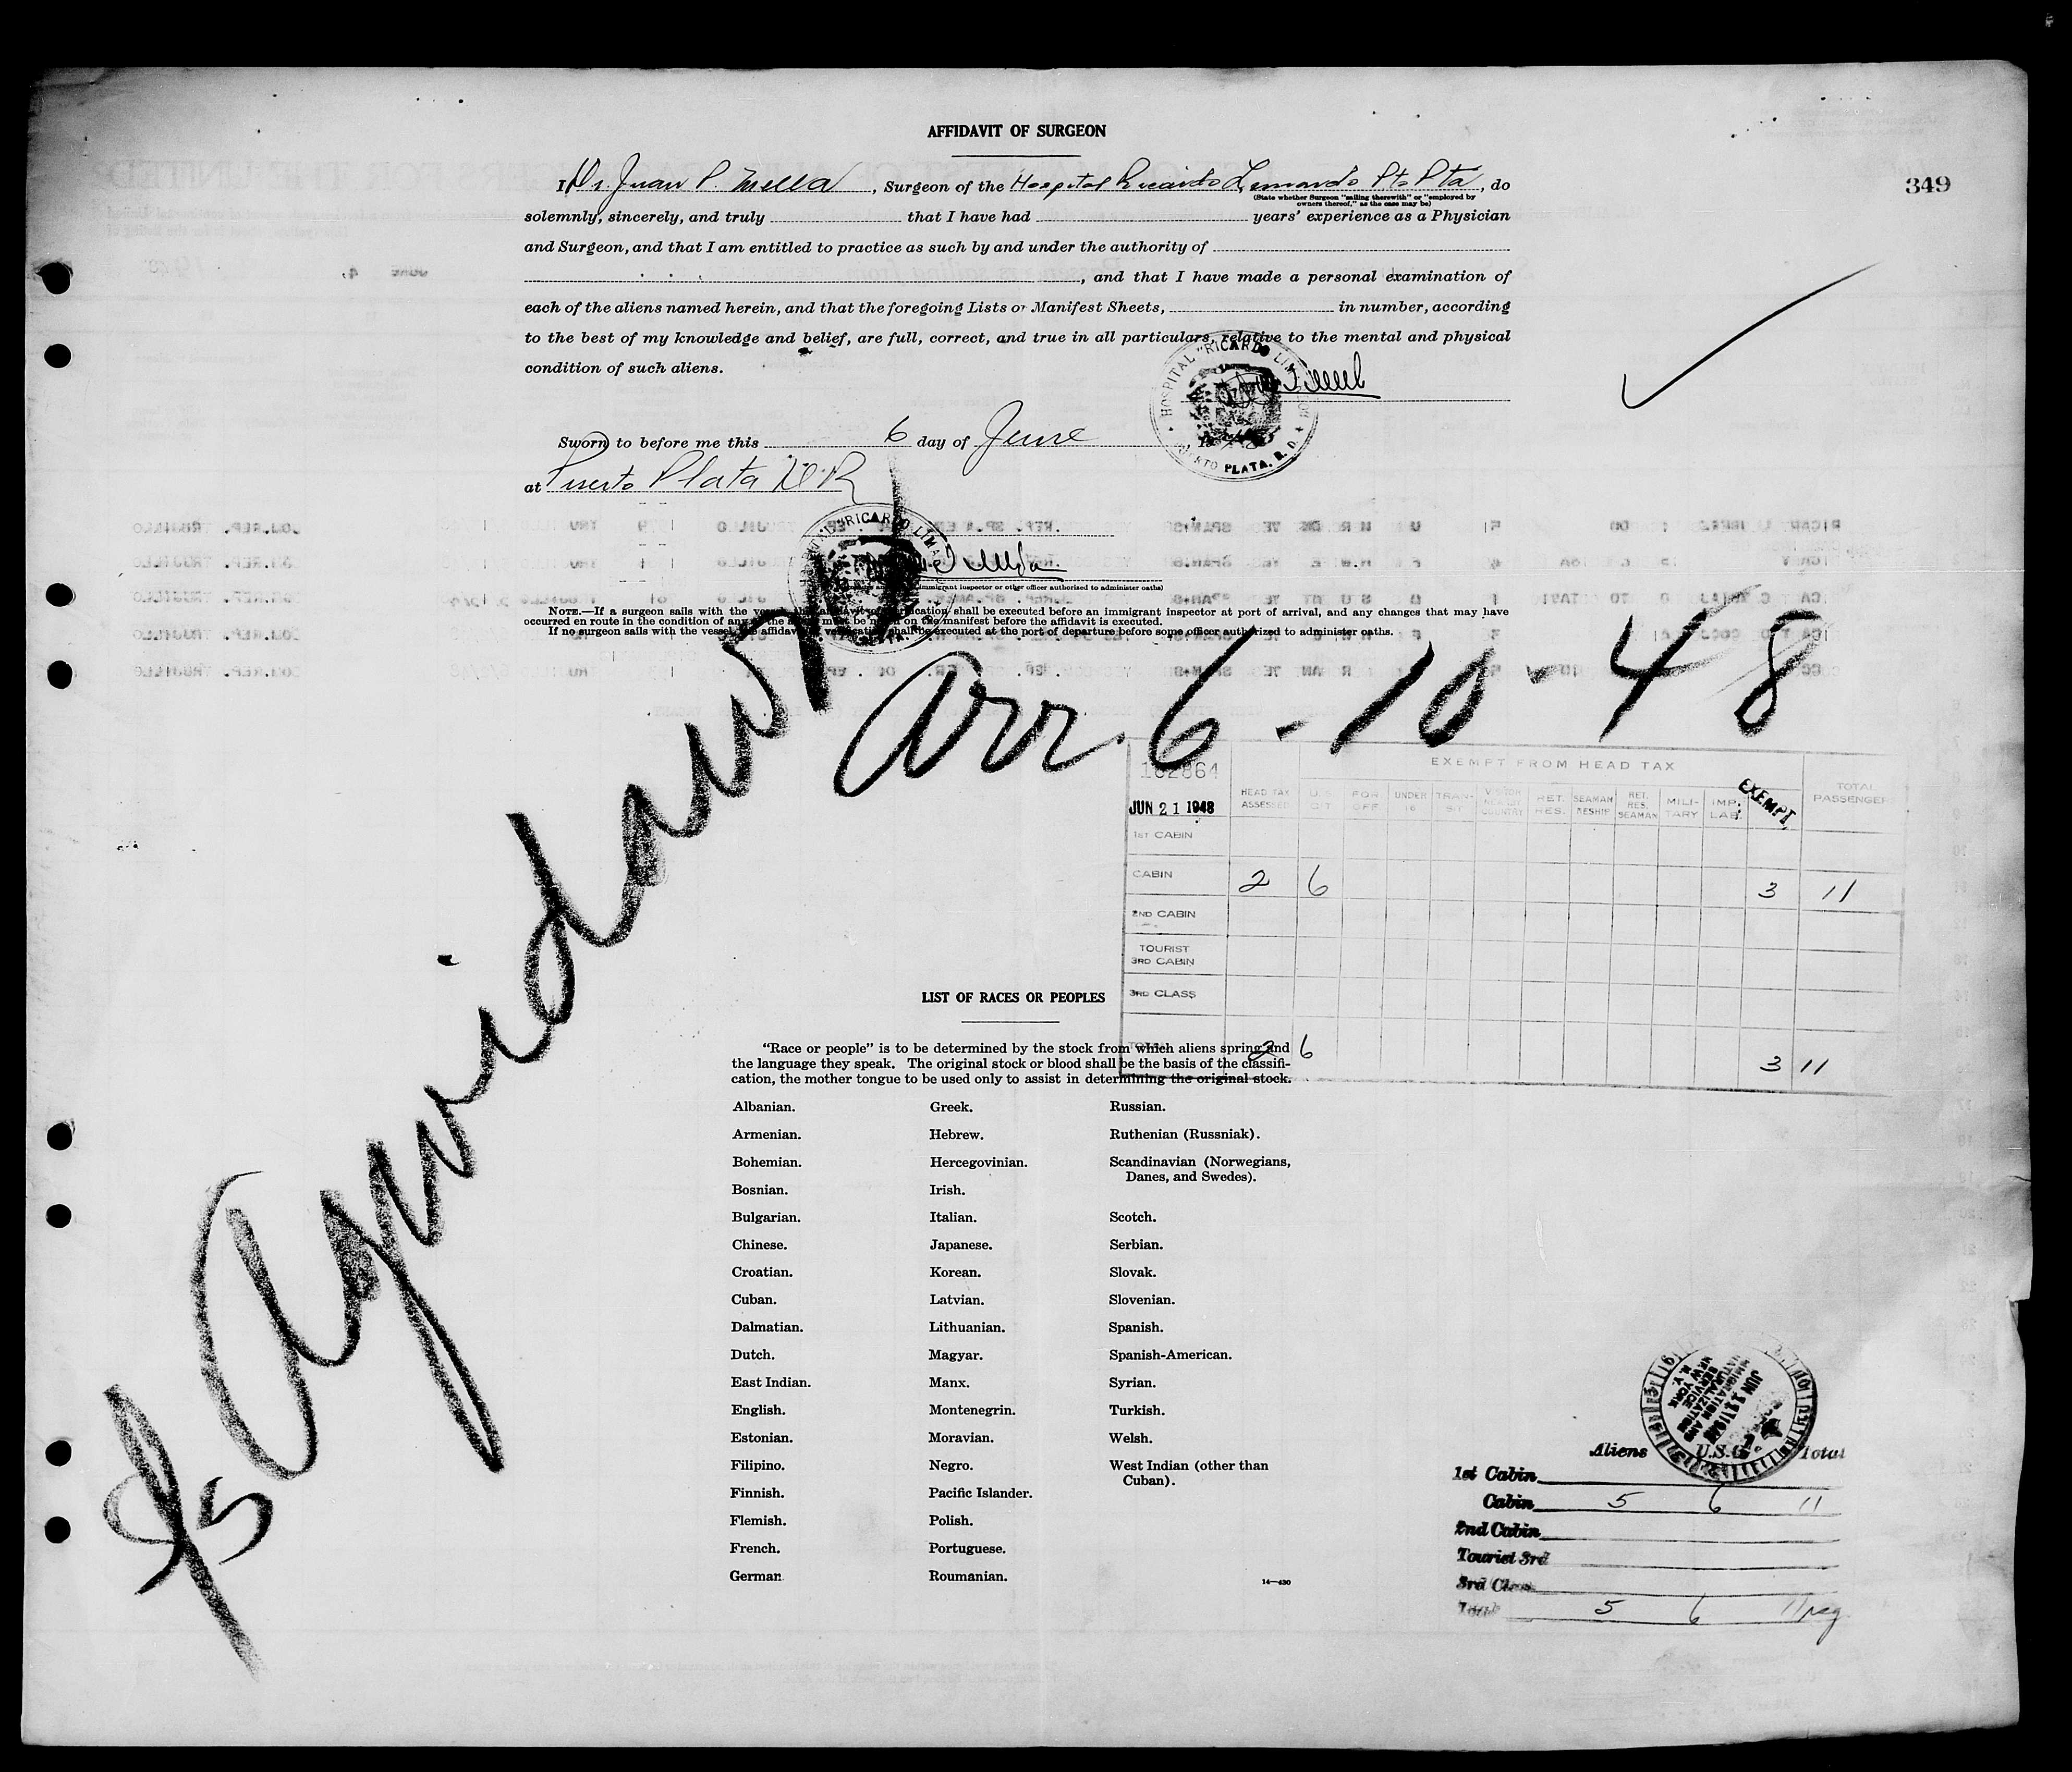 AFFIDAVIT OF SURGEON
349
I Dr Juan P. Mella, Surgeon of the Hospital Ricardo Limardo Pto Pta, do
(State whether Surgeon "sailing therewith" or "employed by
owners thereof," as the case may be)
solemnly, sincerely, and truly that I have had years' experience as a Physician
and Surgeon, and that I am entitled to practice as such by and under the authority of
, and that I have made a personal examination of
each of the aliens named herein, and that the foregoing Lists or Manifest Sheets, in number, according
to the best of my knowledge and belief, are full, correct, and true in all particulars, relative to the mental and physical
condition of such aliens.
HOSPITAL "RICARDO LIM
PUERTO PLATA, R. D.
Sworn to before me this 6 day of June
at Puerto Plata D.R
"RICARDO LIMA
(Immigrant inspector or other officer authorised to administer oaths)
NOTE.—If a surgeon sails with the vessel, this affidavit of verification shall be executed before an immigrant inspector at port of arrival, and any changes that may have
occurred en route in the condition of any of the aliens must be noted on the manifest before the affidavit is executed.
If no surgeon sails with the vessel this affidavit of verification shall be executed at the port of departure before some officer authorized to administer oaths.
Arr. 6-10-48
162864
EXEMPT FROM HEAD TAX
JUN 21 1948
HEAD TAX ASSESSED U.S. CIT. FOR. OFF. UNDER 16 TRANSIT RET. RES. SEAMAN RESHIP RET. RES. SEAMAN MILITARY IMP. LAB. EXEMPT. TOTAL PASSENGER
1ST CABIN
CABIN 2 6 3 11
2ND CABIN
TOURIST
3RD CABIN
3RD CLASS
2 6 3 11
LIST OF RACES OR PEOPLES
"Race or people" is to be determined by the stock from which aliens spring and
the language they speak. The original stock or blood shall be the basis of the classifi-
cation, the mother tongue to be used only to assist in determining the original stock.
Albanian. Greek. Russian.
Armenian. Hebrew. Ruthenian (Russniak).
Bohemian. Hercegovinian. Scandinavian (Norwegians,
Danes, and Swedes).
Bosnian. Irish.
Bulgarian. Italian. Scotch.
Chinese. Japanese. Serbian.
Croatian. Korean. Slovak.
Cuban. Latvian. Slovenian.
Dalmatian. Lithuanian. Spanish.
Dutch. Magyar. Spanish-American.
East Indian. Manx. Syrian.
English. Montenegrin. Turkish.
Estonian. Moravian. Welsh.
Filipino. Negro. West Indian (other than
Cuban).
Finnish. Pacific Islander.
Flemish. Polish.
French. Portuguese.
German Roumanian.
14—430
IMMIGRATION AND
NATURALIZATION
SERVICE
NEW YORK
N.Y.
Aliens U.S.C. Total
1st Cabin
Cabin 5 6 11
2nd Cabin
Tourist 3rd
3rd Class
Total 5 6 11